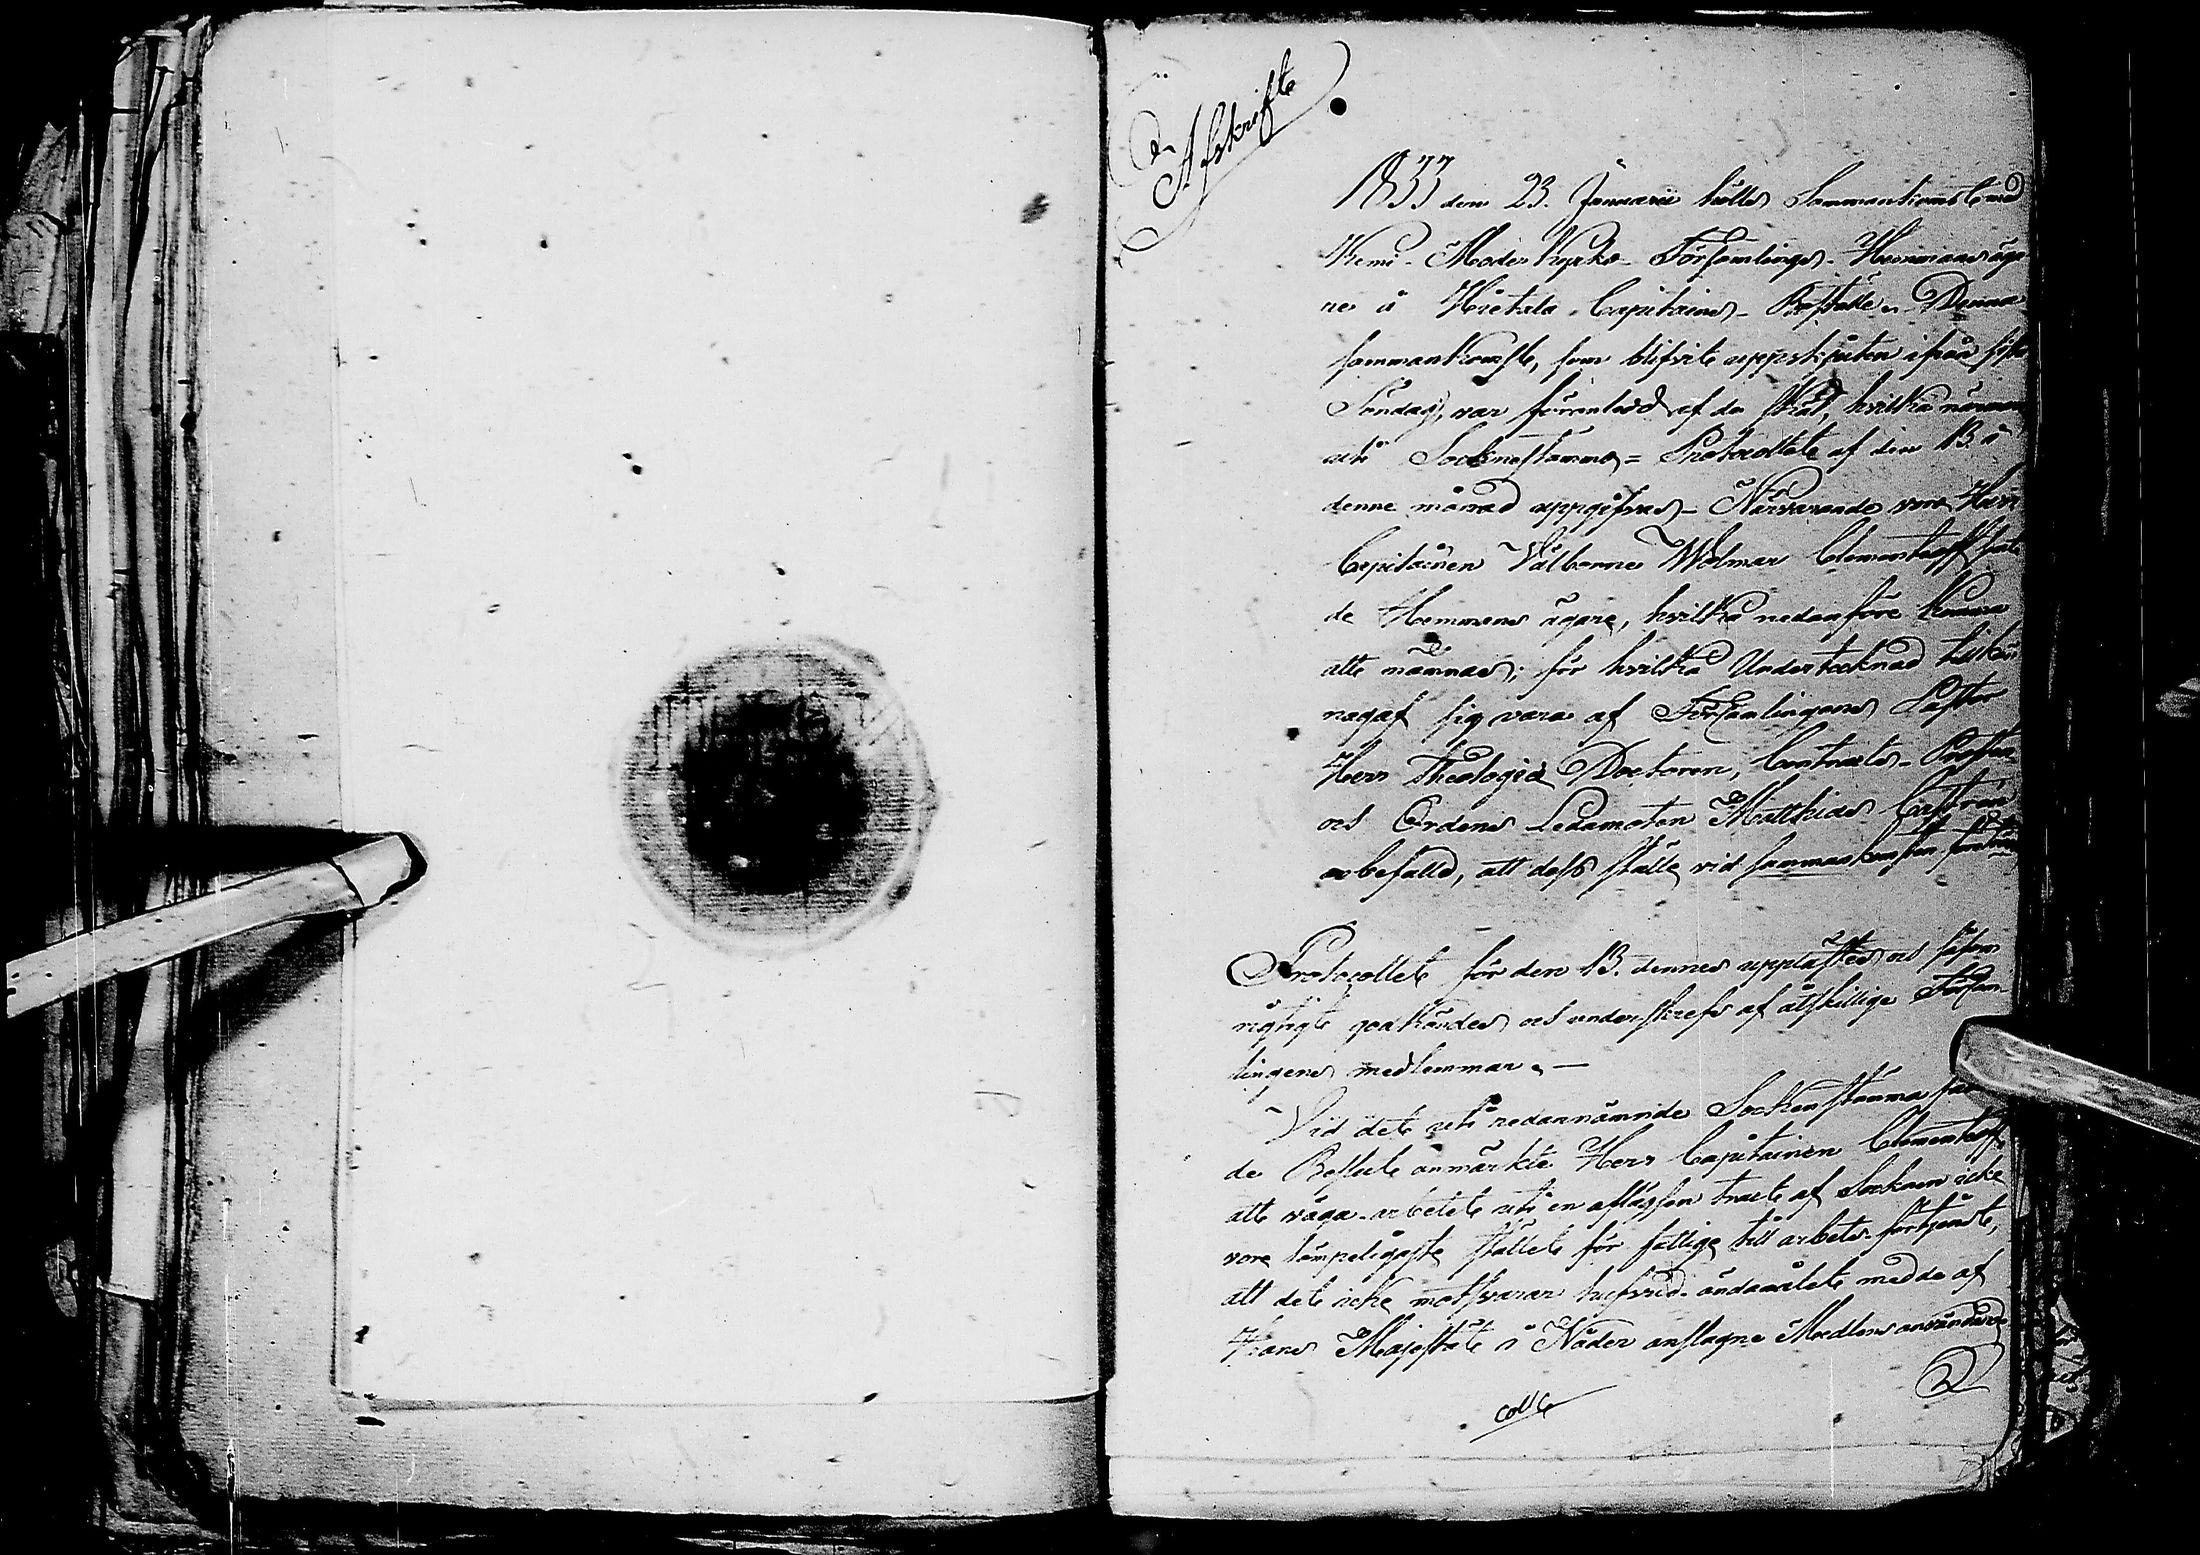 Afskrift
1833 den 23. Januarii hölls Sammankomst med
Kemi Moderkyrko-Församlings Hemmansäga-
re å Hietala Capitains Boställe. Denna
sammankomst, som blifvit uppskjuten ifrån sista
Söndag, var föranledd af de skäl, hvilka närmare
uti Sockenstämmo-Protocollet af den 13 i
denne månad uppgifvas. Närvarande voro Herr
Capitainen Välborne Wolmar Clementeoff samt
de Hemmans ägare, hvilka nedanföre komma
att nämnas; för hvilka Undertecknad tillkän-
nagaf sig vara af Församlingens Pastor
Herr Theologiæ Doctoren, Contracts-Prosten
och Ordens Ledamoten Matthias Castrén
anbefalld, att dess ställe vid sammankomsten
Protocollet för den 13. dennes upplästes och såsom
riktigt godkändes och underskrefs af åtskillige Försam-
lingens medlemmar. —
Vid det uti nedannämnde Sockenstämma
de Beslut anmärkte Herr Capitainen Clementeoff,
att väga-arbetet uti en aflägsen tract af Socknen icke
vore lämpeligaste stället för fattige till arbets-förtjenst,
att det icke motsvarar hufvud-ändamålet med de af
Hans Majestät i Nåder anslagne Medlens användande
coll